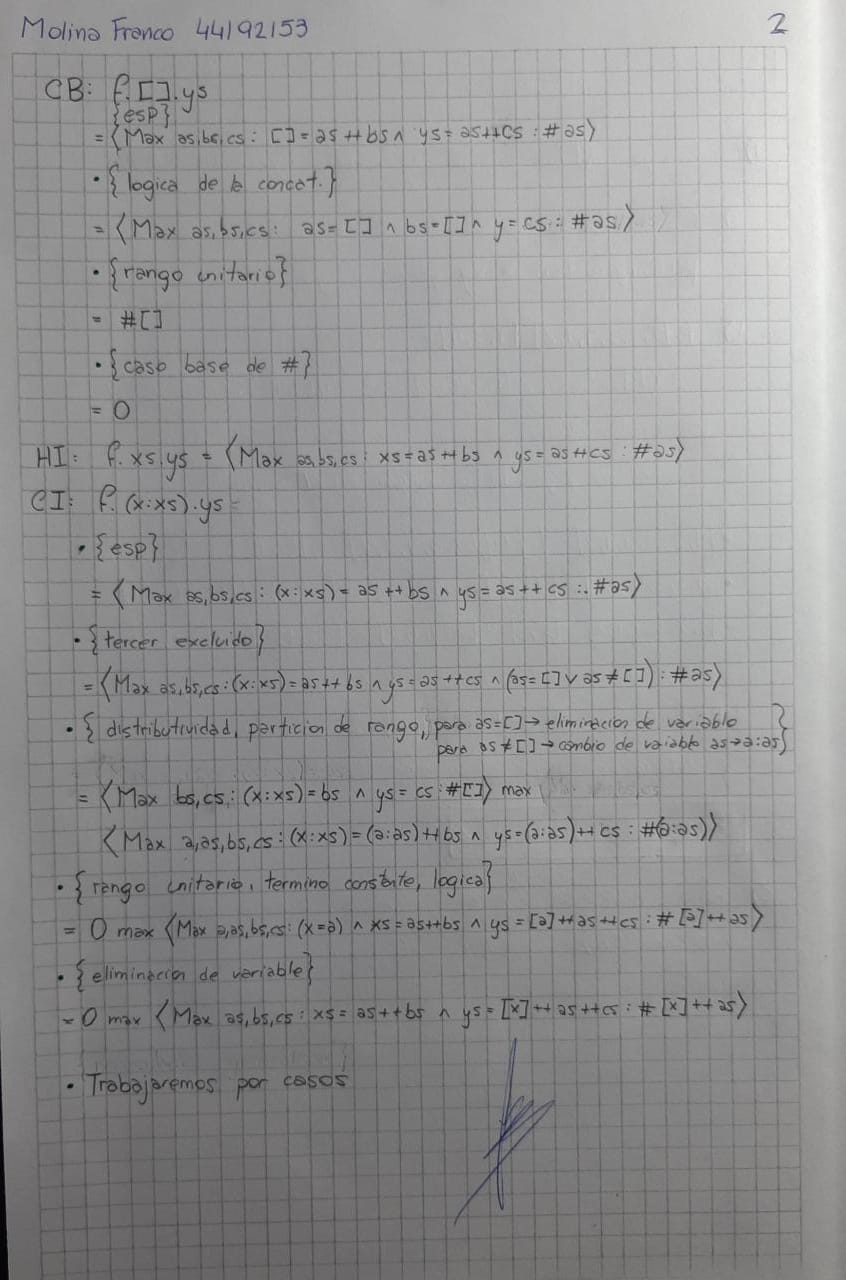 Molina Franco 44192153
2
CB: f.[].ys
{esp}
= ⟨Max as,bs,cs : [] = as ++ bs ∧ ys = as ++ cs : #as⟩
• {logica de la concat.}
= ⟨Max as,bs,cs : as = [] ∧ bs = [] ∧ y = cs : #as⟩
• {rango unitario}
= #[]
• {caso base de #}
= 0
HI: f.xs.ys = ⟨Max as,bs,cs : xs = as ++ bs ∧ ys = as ++ cs : #as⟩
CI: f.(x:xs).ys =
• {esp}
= ⟨Max as,bs,cs : (x:xs) = as ++ bs ∧ ys = as ++ cs : #as⟩
• {tercer excluido}
= ⟨Max as,bs,cs : (x:xs) = as ++ bs ∧ ys = as ++ cs ∧ (as = [] ∨ as ≠ []) : #as⟩
• { distributividad, particion de rango, para as = [] → eliminacion de variable
para as ≠ [] → cambio de variable as → a:as}
= ⟨Max bs,cs : (x:xs) = bs ∧ ys = cs : #[]⟩ max
⟨Max a,as,bs,cs : (x:xs) = (a:as) ++ bs ∧ ys = (a:as) ++ cs : #(a:as)⟩
• {rango unitario, termino constante, logica}
= 0 max ⟨Max a,as,bs,cs : (x = a) ∧ xs = as ++ bs ∧ ys = [a] ++ as ++ cs : # [a] ++ as⟩
• {eliminacion de variable}
= 0 max ⟨Max as,bs,cs : xs = as ++ bs ∧ ys = [x] ++ as ++ cs : # [x] ++ as⟩
• Trabajaremos por casos